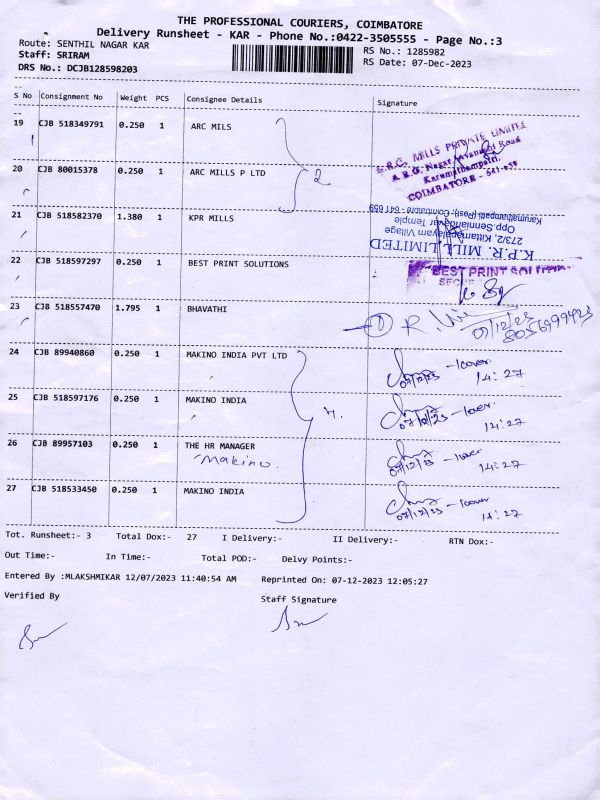 THE PROFESSIONAL COURIERS, COIMBATORE
Delivery Runsheet - KAR - Phone No.:0422-3505555 - Page No.:3
Route: SENTHIL NAGAR KAR RS No.: 1285982
Staff: SRIRAM RS Date: 07-Dec-2023
DRS No.: DCJB128598203
S No Consignment No Weight PCS Consignee Details Signature
19 CJB 518349791 0.250 1 ARC MILS
MILLS PRIVATE LIMITED
A.R.G. Nagar, Avanashi Road
Karumathampatti,
COIMBATORE - 641-659
20 CJB 80015378 0.250 1 ARC MILLS P LTD 2
21 CJB 518582370 1.380 1 KPR MILLS
K.P.R. MILL LIMITED
273/2, Kittampalayam Village
Opp.Senniandavar Temple
Karumathampatti (Post), Coimbatore - 641 659
22 CJB 518597297 0.250 1 BEST PRINT SOLUTIONS
BEST PRINT
23 CJB 518557470 1.795 1 BHAVATHI 1 R.
07/12/23
8056999423
24 CJB 89940860 0.250 1 MAKINO INDIA PVT LTD - 1cover
07/12/23 14:27
25 CJB 518597176 0.250 1 MAKINO INDIA 4. - 1cover.
07/12/23 14:27
26 CJB 89957103 0.250 1 THE HR MANAGER - 1cover
Makino. 07/12/23 14:27
27 CJB 518533450 0.250 1 MAKINO INDIA - 1cover
07/12/23 14:27
Tot. Runsheet:- 3 Total Dox:- 27 I Delivery:- II Delivery:- RTN Dox:-
Out Time:- In Time:- Total POD:- Delvy Points:-
Entered By :MLAKSHMIKAR 12/07/2023 11:40:54 AM Reprinted On: 07-12-2023 12:05:27
Verified By Staff Signature